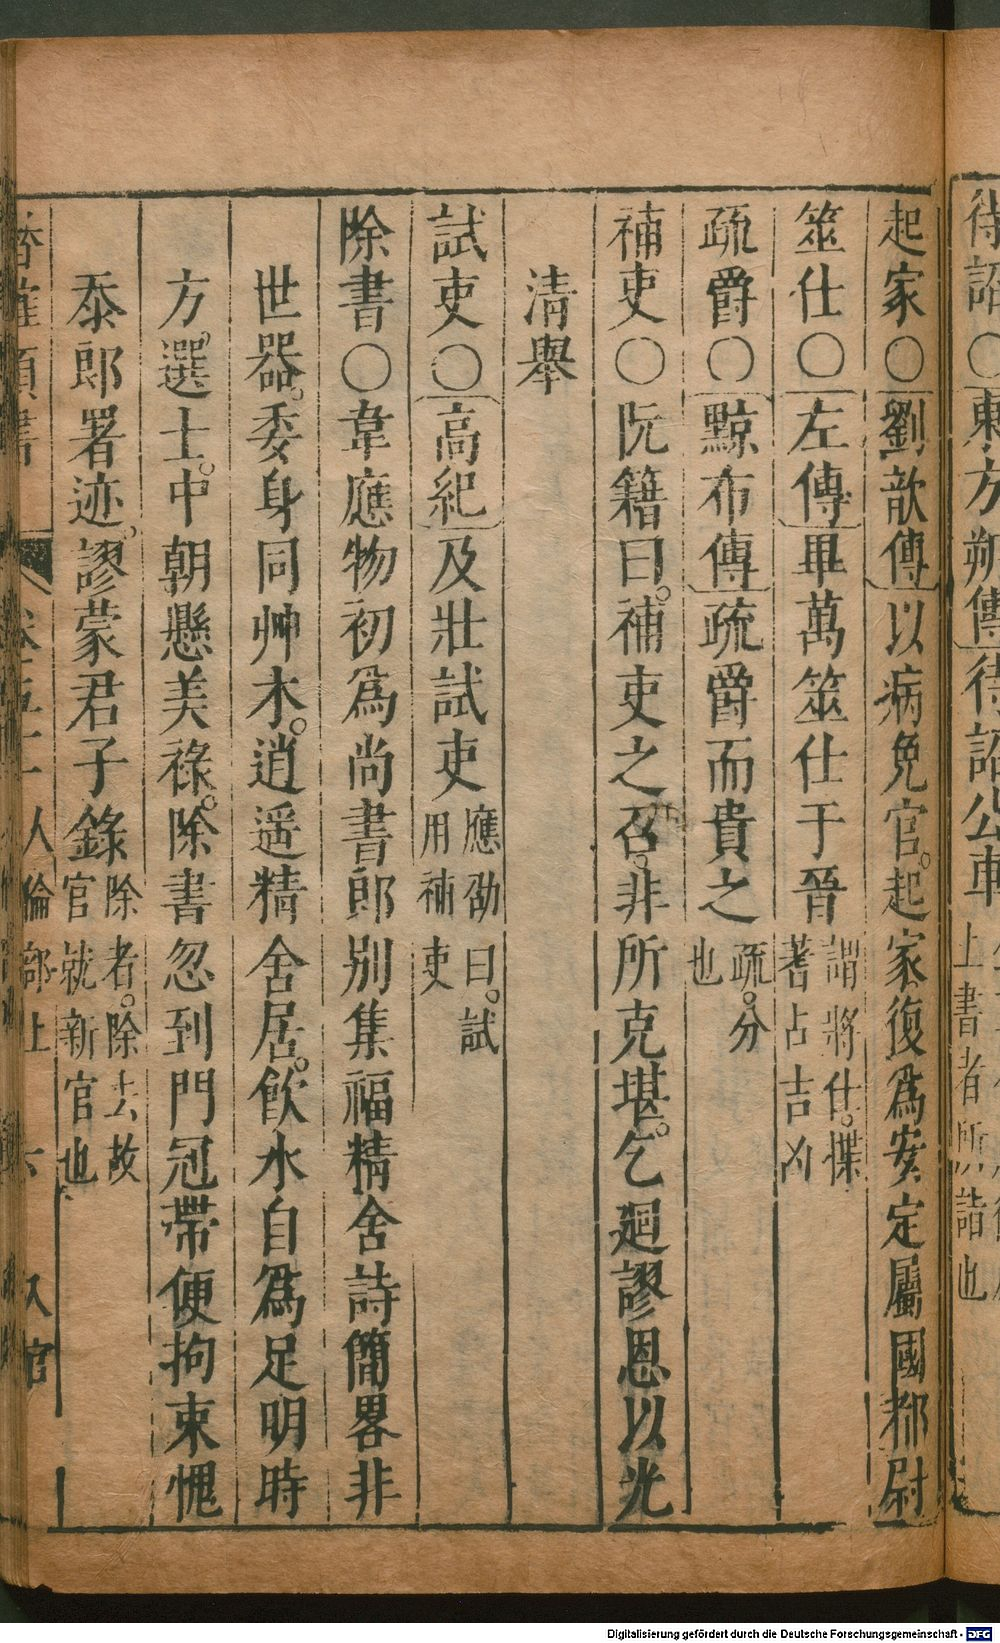 待詔〇東方朔傳待詔公車
上書者所詣也
起家〇劉歆傳以病免官。起家復爲安定屬國都尉
筮仕〇左傳畢萬筮仕于晉謂將仕。揲
蓍占吉凶
疏爵〇黥布傳疏爵而貴之疏。分
也
補吏〇阮籍曰。補吏之召。非所克堪。乞廻謬恩以光
清舉
試吏〇高紀及壯試吏應劭曰。試
用補吏
除書〇韋應物初爲尚書郎別集福精舍詩簡畧非
世器。委身同艸木。逍遥精舍居。飲水自爲足明時
方選士。中朝懸美祿。除書忽到門冠帶便拘束愧
忝郎署迹。謬蒙君子錄除者。除去故
官就新官也
卷五十一人倫部上 六 入官
Digitalisierung gefördert durch die Deutsche Forschungsgemeinschaft - DFG